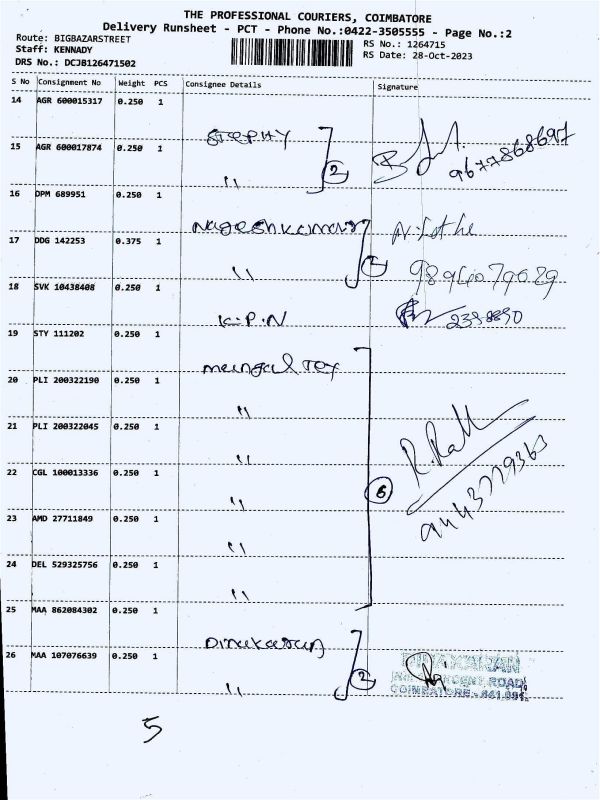 THE PROFESSIONAL COURIERS, COIMBATORE
Delivery Runsheet - PCT - Phone No.:0422-3505555 - Page No.:2
Route: BIGBAZARSTREET
RS No.: 1264715
Staff: KENNADY
RS Date: 28-Oct-2023
DRS No.: DCJB126471502
S No Consignment No Weight PCS Consignee Details Signature
14 AGR 600015317 0.250 1
STEPHY
15 AGR 600017874 0.250 1
9677868697
" 2
16 DPM 689951 0.250 1
Nageshkumar
17 DDG 142253 0.375 1
" 2
18 SVK 10438408 0.250 1
K.P.N
19 STY 111202 0.250 1
Mungal Tex
20 PLI 200322190 0.250 1
"
21 PLI 200322045 0.250 1
"
22 CGL 100013336 0.250 1
" 6
23 AMD 27711849 0.250 1
"
24 DEL 529325756 0.250 1
"
25 MAA 862084302 0.250 1
Dinakaran
26 MAA 107076639 0.250 1
DINAKARAN
ROAD,
" 2
COIMBATORE - 641 001.
5